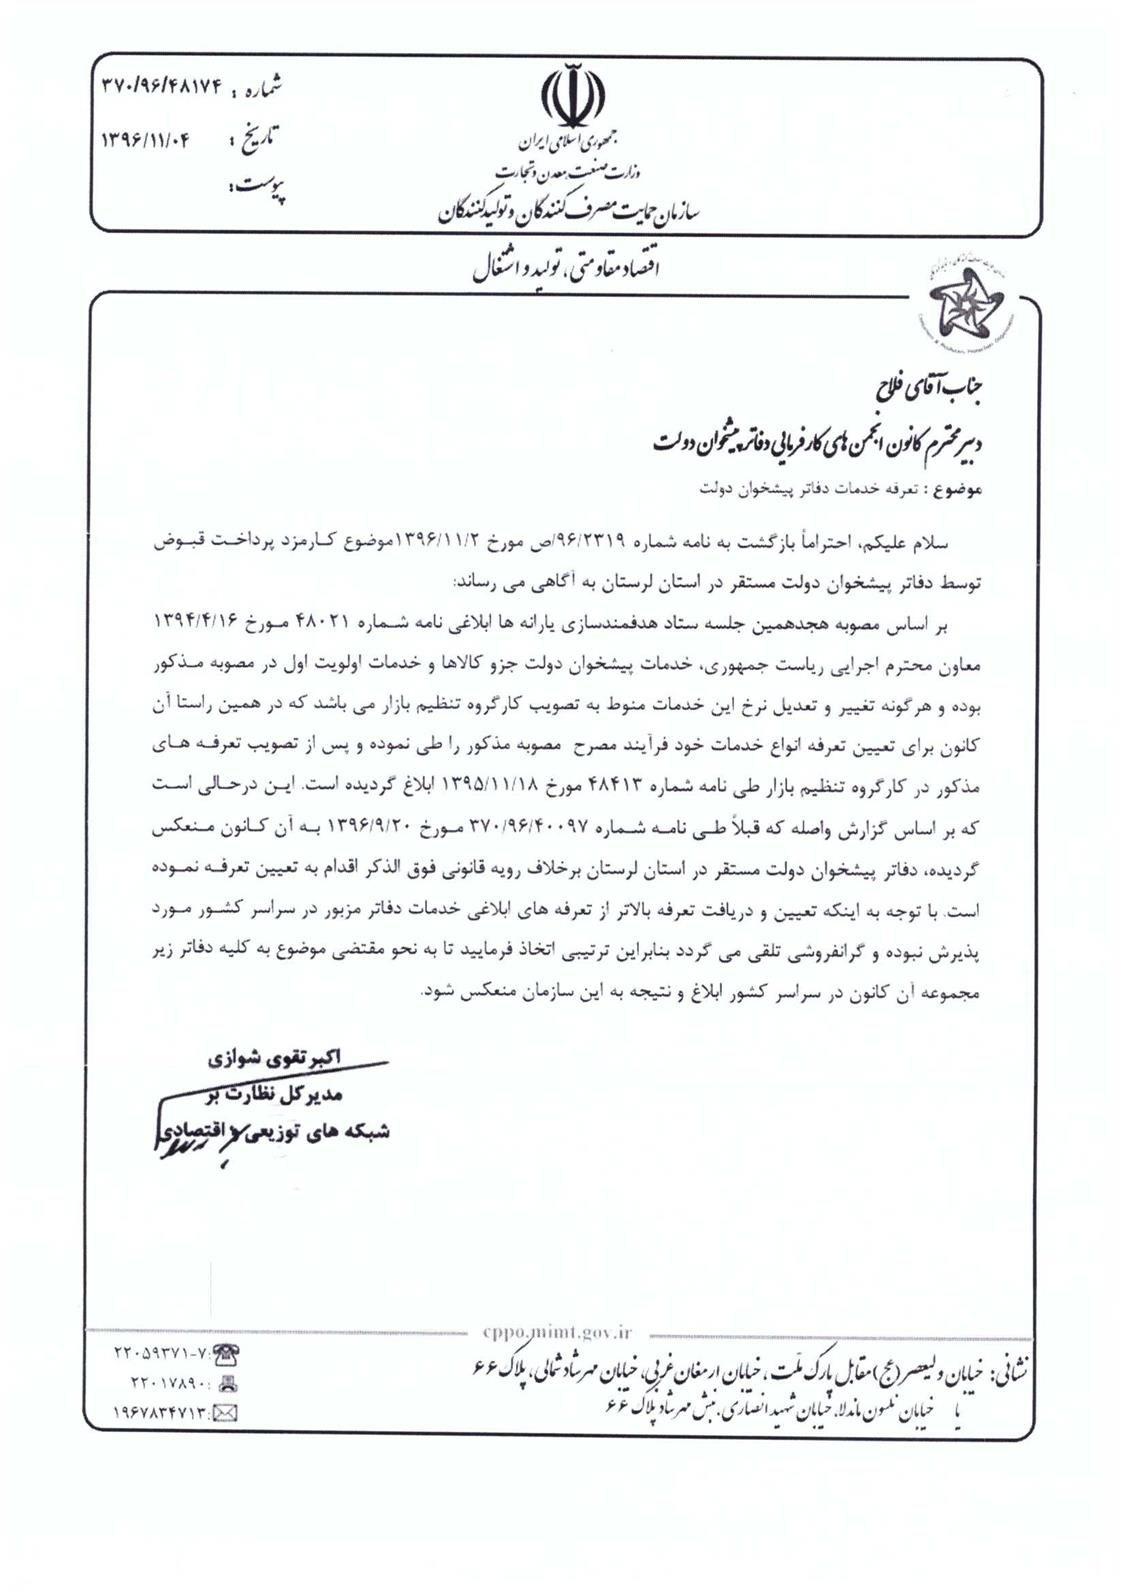 شماره : ۳۷۰/۹۶/۴۸۱۷۴
تاریخ : ۱۳۹۶/۱۱/۰۴
پیوست:
جمهوری اسلامی ایران
وزارت صنعت، معدن و تجارت
سازمان حمایت مصرف کنندگان و تولیدکنندگان
اقتصاد مقاومتی، تولید و اشتغال
جناب آقای فلاح
دبیر محترم کانون انجمن های کارفرمایی دفاتر پیشخوان دولت
موضوع : تعرفه خدمات دفاتر پیشخوان دولت
سلام علیکم، احتراماً بازگشت به نامه شماره ۹۶/۲۳۱۹/ص مورخ ۱۳۹۶/۱۱/۲موضوع کارمزد پرداخت قبوض
توسط دفاتر پیشخوان دولت مستقر در استان لرستان به آگاهی می رساند:
بر اساس مصوبه هجدهمین جلسه ستاد هدفمندسازی یارانه ها ابلاغی نامه شماره ۴۸۰۲۱ مورخ ۱۳۹۴/۴/۱۶
معاون محترم اجرایی ریاست جمهوری، خدمات پیشخوان دولت جزو کالاها و خدمات اولویت اول در مصوبه مذکور
بوده و هرگونه تغییر و تعدیل نرخ این خدمات منوط به تصویب کارگروه تنظیم بازار می باشد که در همین راستا آن
کانون برای تعیین تعرفه انواع خدمات خود فرآیند مصرح مصوبه مذکور را طی نموده و پس از تصویب تعرفه های
مذکور در کارگروه تنظیم بازار طی نامه شماره ۴۸۴۱۳ مورخ ۱۳۹۵/۱۱/۱۸ ابلاغ گردیده است. این درحالی است
که بر اساس گزارش واصله که قبلاً طی نامه شماره ۳۷۰/۹۶/۴۰۰۹۷ مورخ ۱۳۹۶/۹/۲۰ به آن کانون منعکس
گردیده، دفاتر پیشخوان دولت مستقر در استان لرستان برخلاف رویه قانونی فوق الذکر اقدام به تعیین تعرفه نموده
است. با توجه به اینکه تعیین و دریافت تعرفه بالاتر از تعرفه های ابلاغی خدمات دفاتر مزبور در سراسر کشور مورد
پذیرش نبوده و گرانفروشی تلقی می گردد بنابراین ترتیبی اتخاذ فرمایید تا به نحو مقتضی موضوع به کلیه دفاتر زیر
مجموعه آن کانون در سراسر کشور ابلاغ و نتیجه به این سازمان منعکس شود.
اکبر تقوی شوازی
مدیرکل نظارت بر
شبکه های توزیعی و اقتصادی
cppo.mimt.gov.ir
نشانی: خیابان ولیعصر(عج)مقابل پارک ملت، خیابان ارمغان غربی، خیابان مهرشاد شمالی، پلاک ۶۶
یا خیابان نلسون ماندلا، خیابان شهید انصاری، نبش مهرشاد پلاک ۶۶
۲۲۰۵۹۳۷۱-۷:
۲۲۰۱۷۸۹۰:
۱۹۶۷۸۳۴۷۱۳: